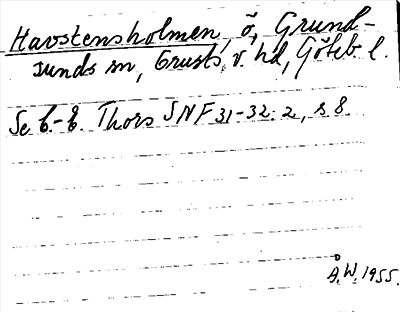 Havstensholmen, ö, Grund-
sunds sn, Orusts v. hd, Göteb. l.
Se C.-E. Thors SNF 31-32:2, s 8.
Å.W. 1955.